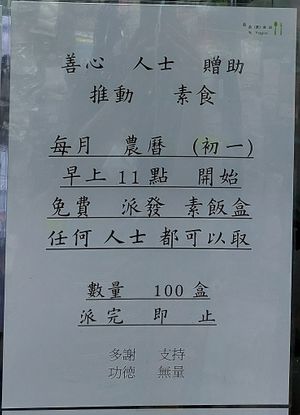 善心 人士 贈助
推動 素食
每月 農曆 (初一)
早上 11 點 開始
免費 派發 素飯盒
任何 人士 都可以取
數量 100 盒
派完 即 止
多謝 支持
功德 無量